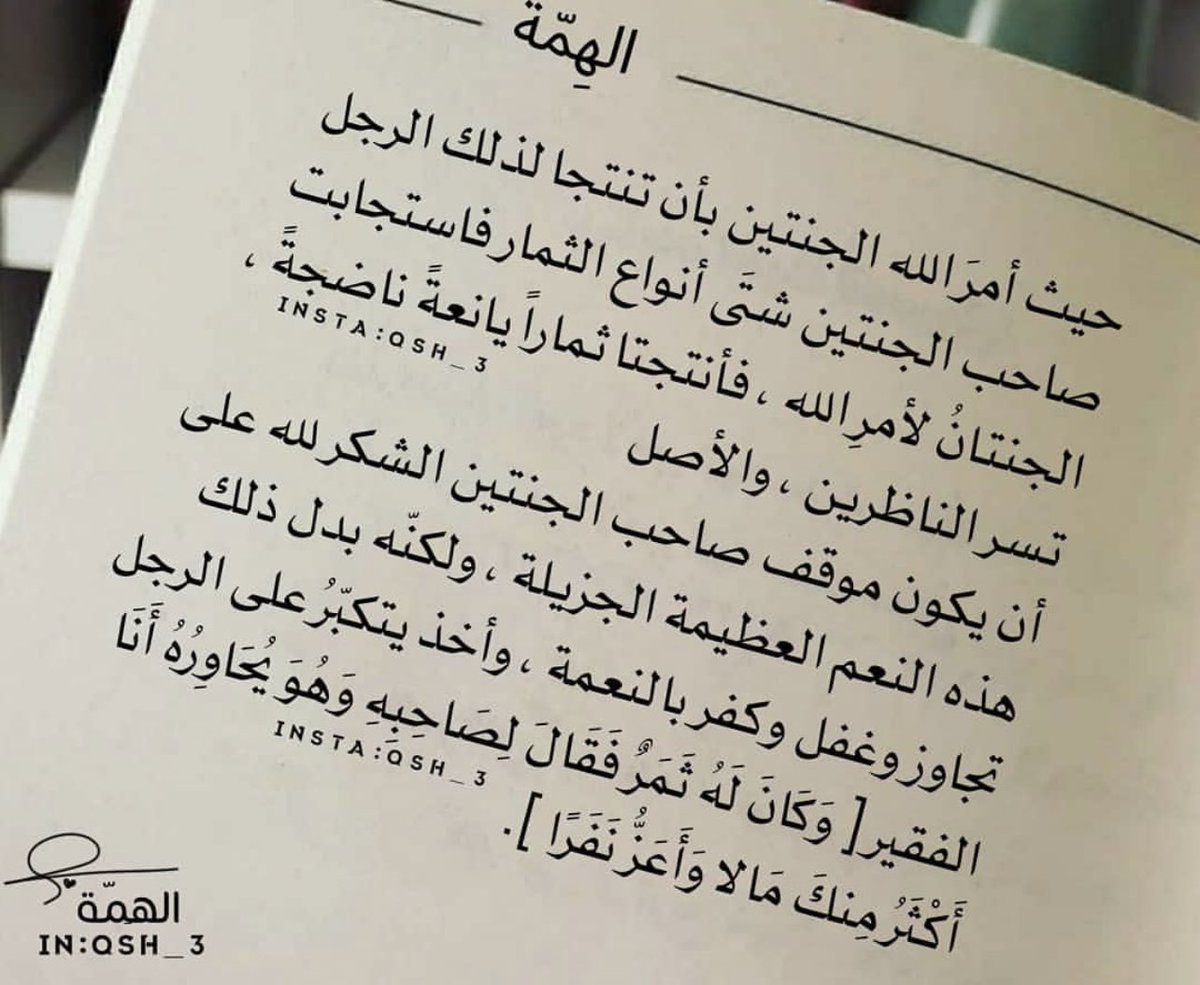 الهِمّة
حيث أمرَ الله الجنتين بأن تنتجا لذلك الرجل
صاحب الجنتين شتَّى أنواع الثمار فاستجابت
الجنتانُ لأمرِ الله ، فأنتجتا ثماراً يانعةً ناضجةً ،
INSTA:QSH_3
تسر الناظرين ، والأصل
أن يكون موقف صاحب الجنتين الشكر لله على
هذه النعم العظيمة الجزيلة ، ولكنّه بدل ذلك
تجاوز وغفل وكفر بالنعمة ، وأخذ يتكبّرُ على الرجل
الفقير[ وَكَانَ لَهُ ثَمَرٌ فَقَالَ لِصَاحِبِهِ وَهُوَ يُحَاوِرُهُ أَنَا
INSTA:QSH_3
أَكْثَرُ مِنكَ مَالا وَأَعَزُّ نَفَرًا ].
الهِمّة
IN:QSH_3